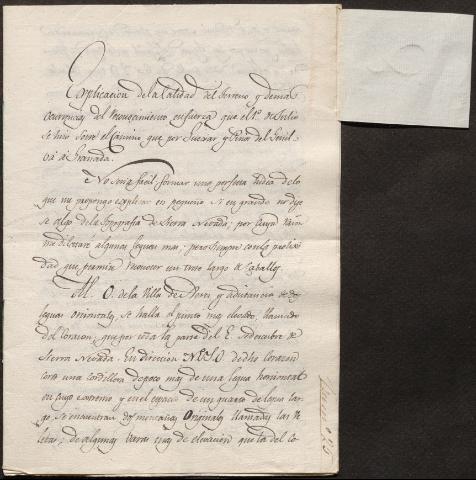 Explicacion de la Calidad del terreno y demas
ocurrencias del Reconocimiento en fuerza que el 1º de Julio
se hizo sobre el Camino que por Guejar y Pinos del Genil
vá á Granada.
No seria facil formar una perfecta idea de lo
que me propongo explicar en pequeño si en grande no dije
se algo de la Topografia de Sierra Nevada; por cuya razon
me dilatare algunas lineas mas; pero siempre con la
dad que permita reconocer un trozo largo á Caballo.
Al O. de la Villa de y á distancia de
leguas orientales se halla el punto mas elevado, llamado
del Corazon, que por esta la parte del E. se descubre de
Sierra Nevada. En direccion N. E. S. O. de dho corazon
corre una cordillera de poco mas de una legua horizontal
en su extremo y en el espacio de un quarto de legua lar
go se encuentran dos montañas Originales llamadas las
letas, de algunas varas mas de elevacion que la del Co